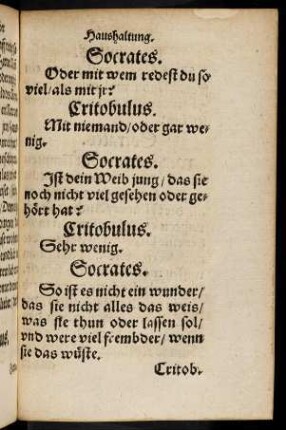 Haushaltung.
Socrates.
Oder mit wem redest du so
viel/als mit jr?
Critobulus.
Mit niemand/oder gar we-
nig.
Socrates.
Jst dein Weib jung/das sie
noch nicht viel gesehen oder ge-
hört hat?
Critobulus.
Sehr wenig.
Socrates.
So ist es nicht ein wunder/
das sie nicht alles das weis/
was sie thun oder lassen sol/
vnd were viel frembder/wenn
sie das wüste.
Critob.